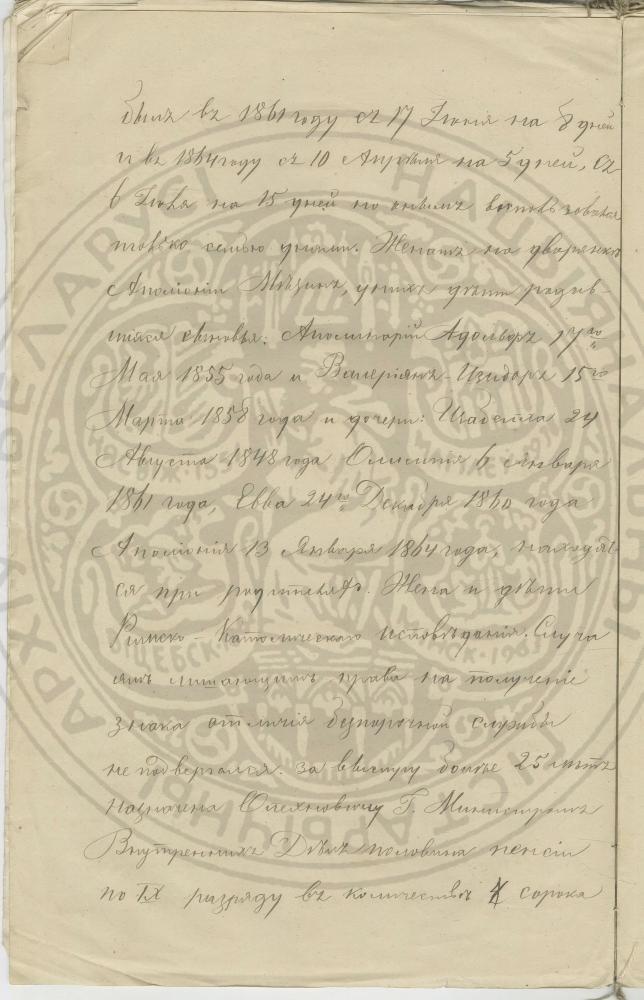 былъ въ 1861 году съ 17 Іюнія на 8 дней
и въ 1864 году съ 10 Апрѣля на 5 дней, Съ
6 Іюля на 15 дней но онымъ воспользовался
только семью днями. Женатъ на дворянкѣ
Аполіоніи, у нихъ дѣти родив-
шійся сыновья: Аполинарій Адольфъ 17го
Мая 1855 года и Валеріянъ-Изидоръ 15го
Марта 1858 года и дочери: Изабелла 24
Августа 1848 года 6 Января
1861 года, Евва 24го Декабря 1860 года
Аполіонія 13 Января 1864 года, находят-
ся при родителяхъ. Жена и дѣти
Римско-Католическаго исповѣданія. Случа
ямъ лишающимъ права на полученіе
знака отличія безпорочной службы
не подвергался. За выслугу болѣе 25 лѣтъ
назначена Олехновичу Г. Министромъ
Внутреннихъ Дѣлъ половина пенсіи
по IX разряду въ количествѣ сорока
АРХІЎ БЕЛАРУСІ